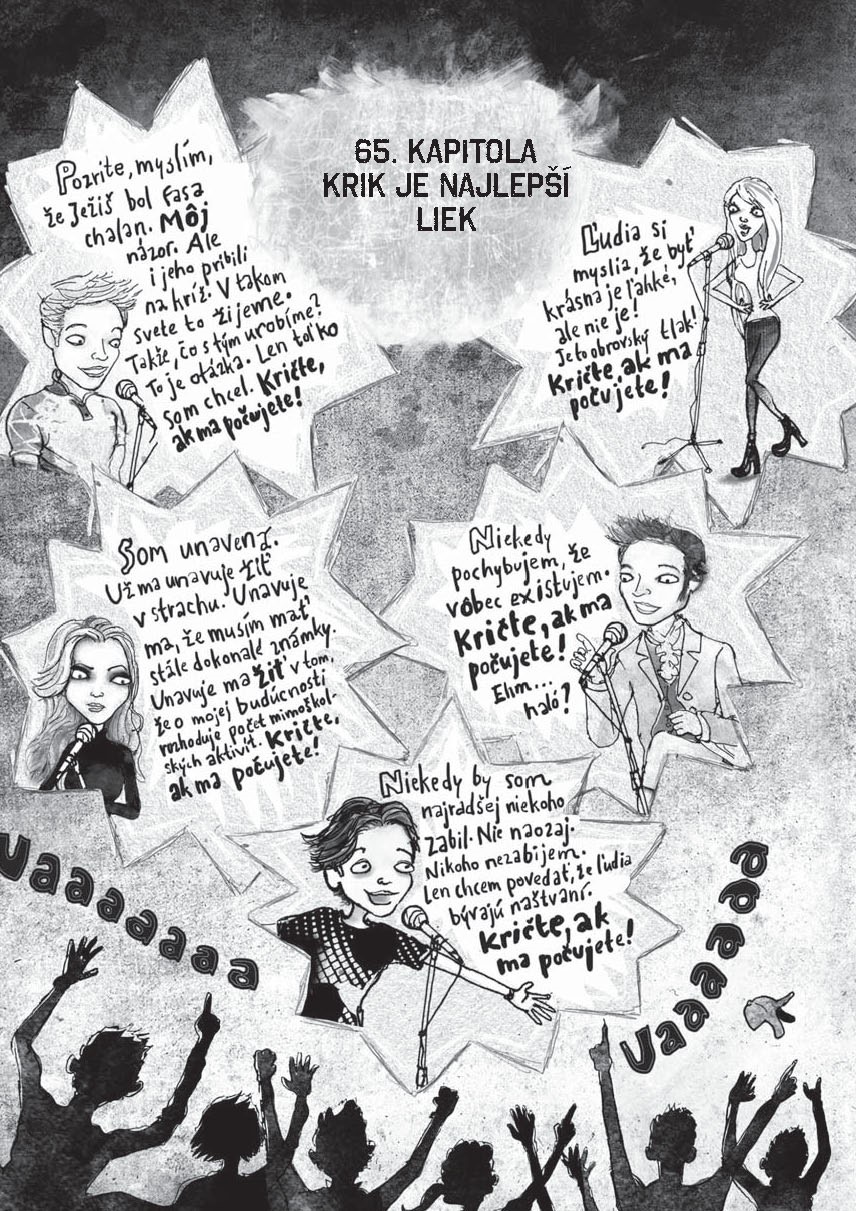 65. KAPITOLA
KRIK JE NAJLEPŠÍ
LIEK
Pozrite, myslím,
že Ježiš bol fasa
chalan. Môj
názor. Ale
i jeho pribili
na kríž. V takom
svete to žijeme.
Takže, čo s tým urobíme?
To je otázka. Len toľko
som chcel. Kričte,
ak ma počujete!
Ľudia si
myslia, že byť
krásna je ľahké,
ale nie je!
Je to obrovský tlak!
Kričte, ak ma
počujete!
Som unavená.
Už ma unavuje žiť
v strachu. Unavuje
ma, že musím mať
stále dokonalé známky.
Unavuje ma žiť v tom,
že o mojej budúcnosti
rozhoduje počet mimoškol-
ských aktivít. Kričte,
ak ma počujete!
Niekedy
pochybujem, že
vôbec existujem.
Kričte, ak ma
počujete!
Ehm...
haló?
Niekedy by som
najradšej niekoho
zabil. Nie naozaj.
Nikoho nezabijem.
Len chcem povedať, že ľudia
bývajú naštvaní.
Kričte, ak
ma počujete!
Uaaaaaaaa
Uaaaaaa